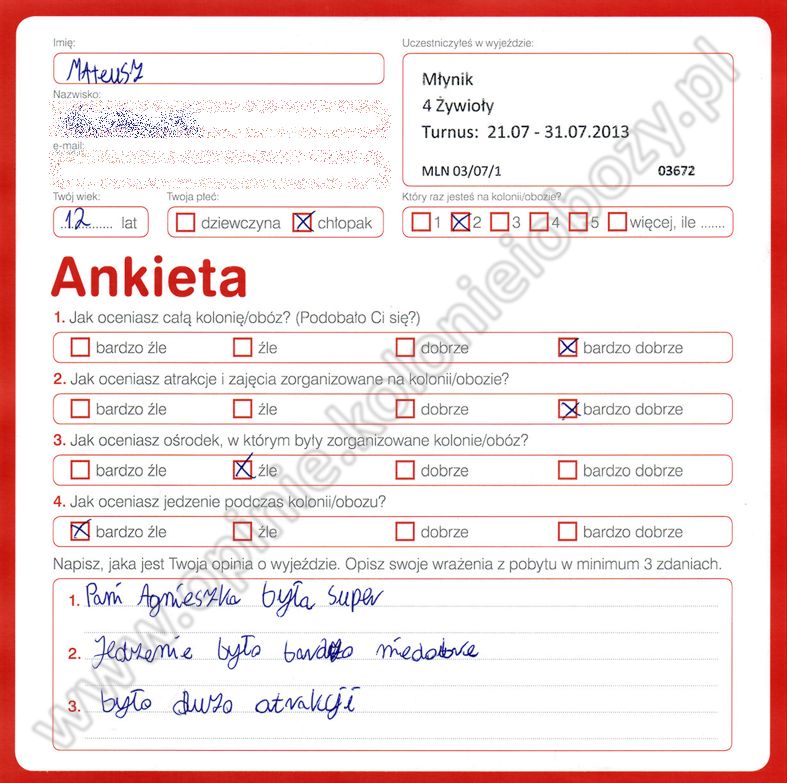 Imię:
Uczestniczyłeś w wyjeździe:
MAteusz
Młynik
4 Żywioły
Turnus: 21.07 - 31.07.2013
MLN 03/07/1 03672
Nazwisko:
e-mail:
Twój wiek:
Twoja płeć:
Który raz jesteś na kolonii/obozie?
12 lat
dziewczyna chłopak
1 2 3 4 5 więcej, ile .......
Ankieta
1. Jak oceniasz całą kolonię/obóz? (Podobało Ci się?)
bardzo źle źle dobrze bardzo dobrze
2. Jak oceniasz atrakcje i zajęcia zorganizowane na kolonii/obozie?
bardzo źle źle dobrze bardzo dobrze
3. Jak oceniasz ośrodek, w którym były zorganizowane kolonie/obóz?
bardzo źle źle dobrze bardzo dobrze
4. Jak oceniasz jedzenie podczas kolonii/obozu?
bardzo źle źle dobrze bardzo dobrze
Napisz, jaka jest Twoja opinia o wyjeździe. Opisz swoje wrażenia z pobytu w minimum 3 zdaniach.
1. Pani Agnieszka była super
2. Jedzenie było bardzo niedobre
3. było dużo atrakcji
www.opinie.kolonieiobozy.pl